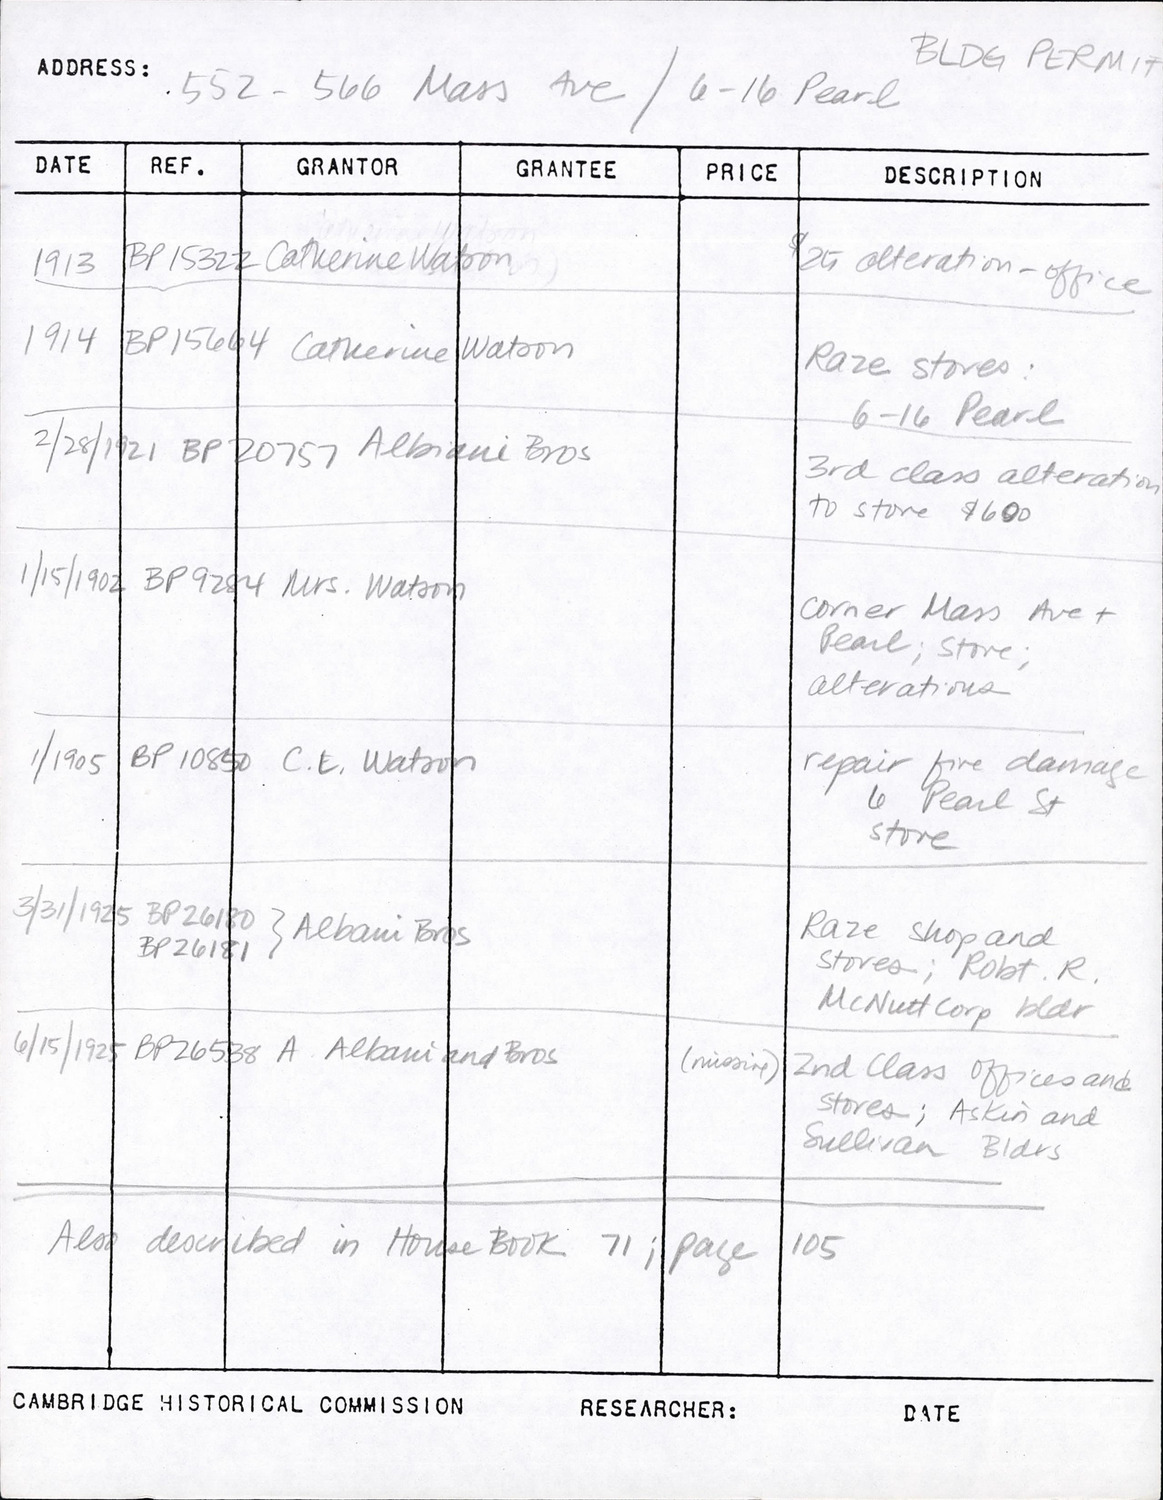 BLDG PERMIT
ADDRESS: 552 - 566 Mass Ave / 6-16 Pearl
DATE REF. GRANTOR GRANTEE PRICE DESCRIPTION
1913 BP15322 Catherine Watson $25 alteration - office
1914 BP15664 Catherine Watson Raze stores:
6-16 Pearl
2/28/1921 BP 20757 Albiani Bros 3rd class alteration
to store $600
1/15/1902 BP9284 Mrs. Watson corner Mass Ave +
Pearl; store;
alterations
1/1905 BP 10850 C.E. Watson repair fire damage
6 Pearl St
store
3/31/1925 BP26180 } Albani Bros Raze shop and
BP26181 stores; Robt. R.
McNutt Corp bldr
6/15/1925 BP26538 A. Albani and Bros (missing) 2nd Class offices and
stores; Askin and
Sullivan Bldrs
Also described in House Book 71; page 105
CAMBRIDGE HISTORICAL COMMISSION RESEARCHER: DATE